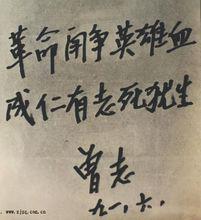 革命闹争英雄血
成仁有志死犹生
曾志
九一.六.
www.zjsc.cnc.cn